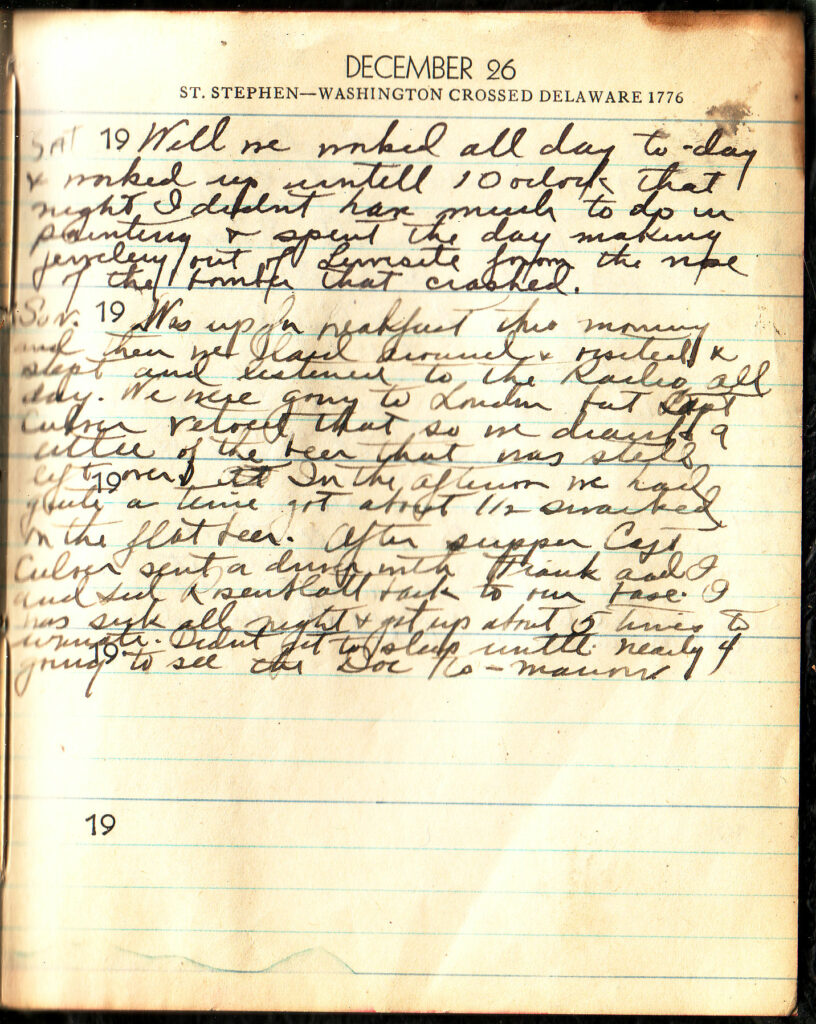 DECEMBER 26
ST. STEPHEN—WASHINGTON CROSSED DELAWARE 1776
Sat 19 Well we worked all day to-day
& worked up untell 10 oclock that
night I didnt have much to do in
painting & spent the day making
jewelery out of from the nose
of the bomber that crashed.
Sun. 19 Was up for breakfast this morning
and then we laid around & visited &
slept and listened to the Radio all
day. We were going to London but Capt
Culver vetoed that so we drank a
little of the beer that was still
left over 19 In the afternoon we had
quite a time got about 1/2 snacked
on the flat beer. After supper Capt
Culver sent a driver with Frank and I
and Rosenblatt back to our base. I
was sick all night & got up about 5 times to
urinate. Didnt get to sleep untill nearly 4
19 going to see the Doc to-morrow
19